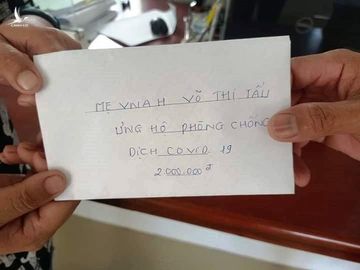 MẸ VNAH VÕ THỊ TẤU
ỦNG HỘ PHÒNG CHỐNG
DỊCH COVID 19
2.000.000đ